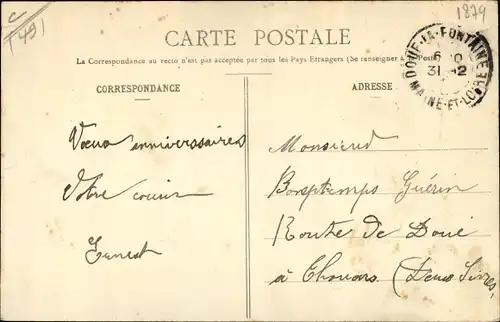 C
(49)
1879
CARTE POSTALE
La Correspondance au recto n'est pas acceptée par tous les Pays Etrangers (Se renseigner à la Poste)
DOUÉ-LA-FONTAINE
6
31-2
MAINE-ET-LOIRE
CORRESPONDANCE
Vœux anniversaires
Votre cousin
Ernest
ADRESSE
Monsieur
Guérin
Route de Doué
à Thouars (Deux Sèvres)